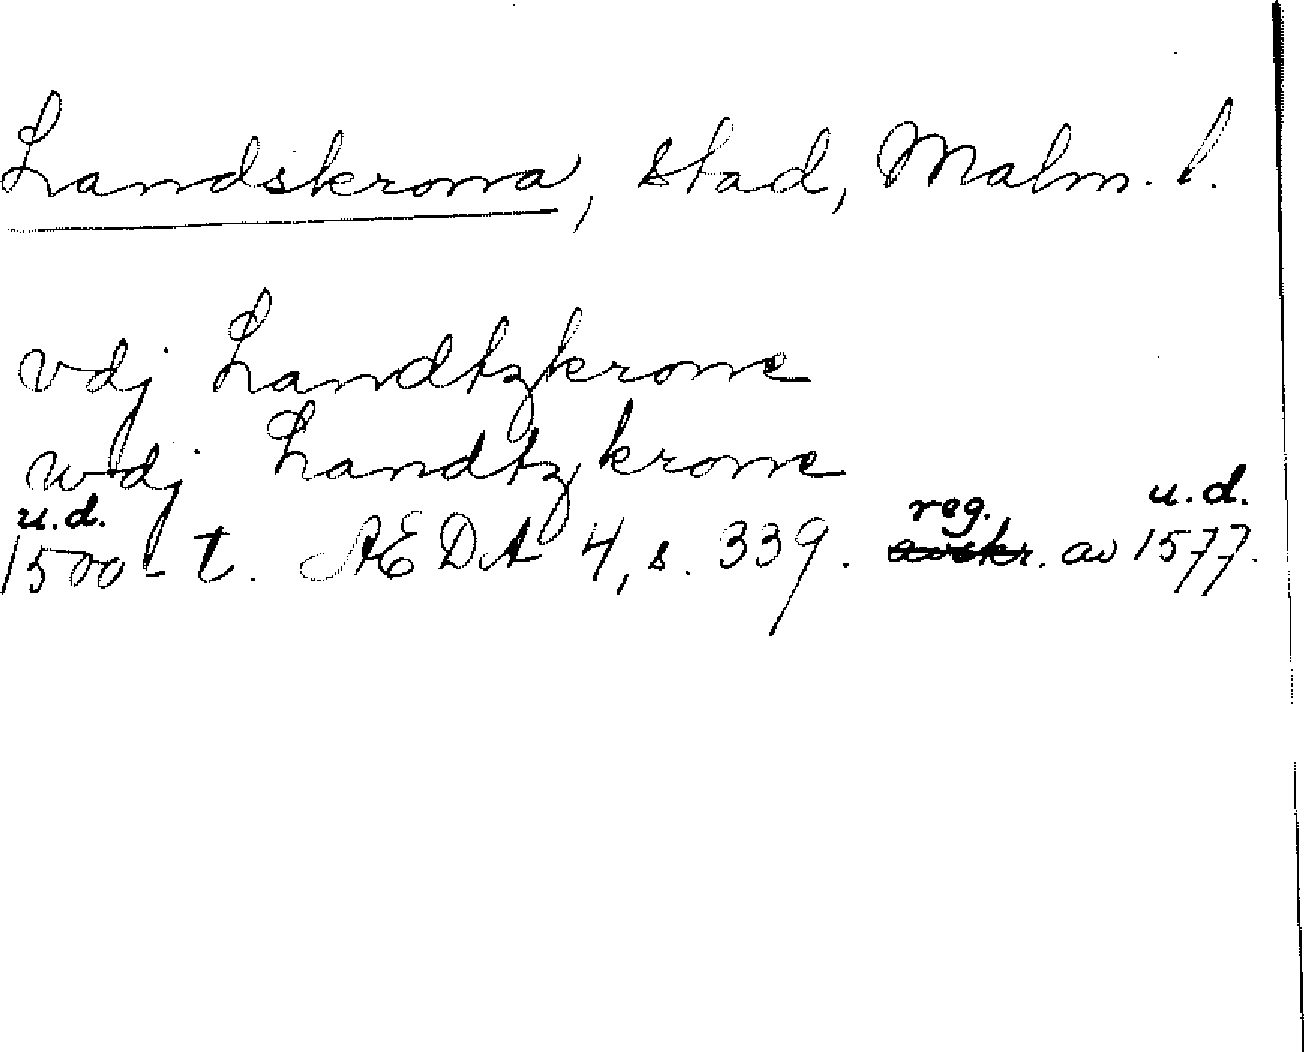 Landskrona, stad, Malm. l.
vdj Landtzkrone
wdj Landtzkrone
u.d. reg. u.d.
1500-t. AEDA 4, s. 339. avskr. av 1577.